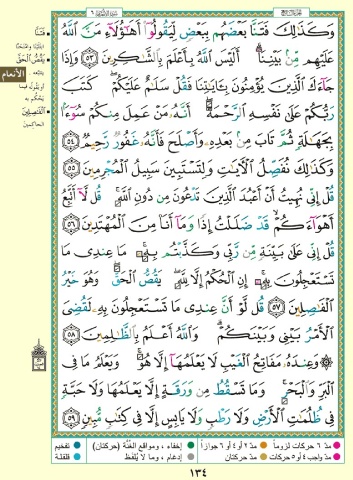 سُورَةُ الأَنْعَامِ ٦
وَكَذَٰلِكَ فَتَنَّا بَعْضَهُم بِبَعْضٍ لِّيَقُولُوٓا۟ أَهَٰٓؤُلَآءِ مَنَّ ٱللَّهُ
عَلَيْهِم مِّنۢ بَيْنِنَآ أَلَيْسَ ٱللَّهُ بِأَعْلَمَ بِٱلشَّٰكِرِينَ ٥٣ وَإِذَا
جَآءَكَ ٱلَّذِينَ يُؤْمِنُونَ بِـَٔايَٰتِنَا فَقُلْ سَلَٰمٌ عَلَيْكُمْ كَتَبَ
رَبُّكُمْ عَلَىٰ نَفْسِهِ ٱلرَّحْمَةَ أَنَّهُۥ مَنْ عَمِلَ مِنكُمْ سُوٓءًۢا
بِجَهَٰلَةٍ ثُمَّ تَابَ مِنۢ بَعْدِهِۦ وَأَصْلَحَ فَأَنَّهُۥ غَفُورٌ رَّحِيمٌ ٥٤
وَكَذَٰلِكَ نُفَصِّلُ ٱلْـَٔايَٰتِ وَلِتَسْتَبِينَ سَبِيلُ ٱلْمُجْرِمِينَ ٥٥
قُلْ إِنِّى نُهِيتُ أَنْ أَعْبُدَ ٱلَّذِينَ تَدْعُونَ مِن دُونِ ٱللَّهِ قُل لَّآ أَتَّبِعُ
أَهْوَآءَكُمْ قَدْ ضَلَلْتُ إِذًا وَمَآ أَنَا۠ مِنَ ٱلْمُهْتَدِينَ ٥٦
قُلْ إِنِّى عَلَىٰ بَيِّنَةٍ مِّن رَّبِّى وَكَذَّبْتُم بِهِۦ مَا عِندِى مَا
تَسْتَعْجِلُونَ بِهِۦٓ إِنِ ٱلْحُكْمُ إِلَّا لِلَّهِ يَقُصُّ ٱلْحَقَّ وَهُوَ خَيْرُ
ٱلْفَٰصِلِينَ ٥٧ قُل لَّوْ أَنَّ عِندِى مَا تَسْتَعْجِلُونَ بِهِۦ لَقُضِىَ
ٱلْأَمْرُ بَيْنِى وَبَيْنَكُمْ وَٱللَّهُ أَعْلَمُ بِٱلظَّٰلِمِينَ ٥٨
وَعِندَهُۥ مَفَاتِحُ ٱلْغَيْبِ لَا يَعْلَمُهَآ إِلَّا هُوَ وَيَعْلَمُ مَا فِى
ٱلْبَرِّ وَٱلْبَحْرِ وَمَا تَسْقُطُ مِن وَرَقَةٍ إِلَّا يَعْلَمُهَا وَلَا حَبَّةٍ
فِى ظُلُمَٰتِ ٱلْأَرْضِ وَلَا رَطْبٍ وَلَا يَابِسٍ إِلَّا فِى كِتَٰبٍ مُّبِينٍ ٥٩
الأنعام
فَتَنَّا
ابتلينا وامتحنا
يَقُصُّ الْحَقَّ
يتبعه
أو يقوله فيما
يحكم به
الْفَاصِلِينَ
الحاكمين
مدّ ٦ حركات لزوماً مدّ ٢ أو ٤ أو ٦ جوازاً إخفاء، ومواقع الغُنَّة (حركتان) تفخيم
مدّ واجب ٤ أو ٥ حركات مدّ حركتان إدغام، وما لا يُلفَظ قلقلة
١٣٤